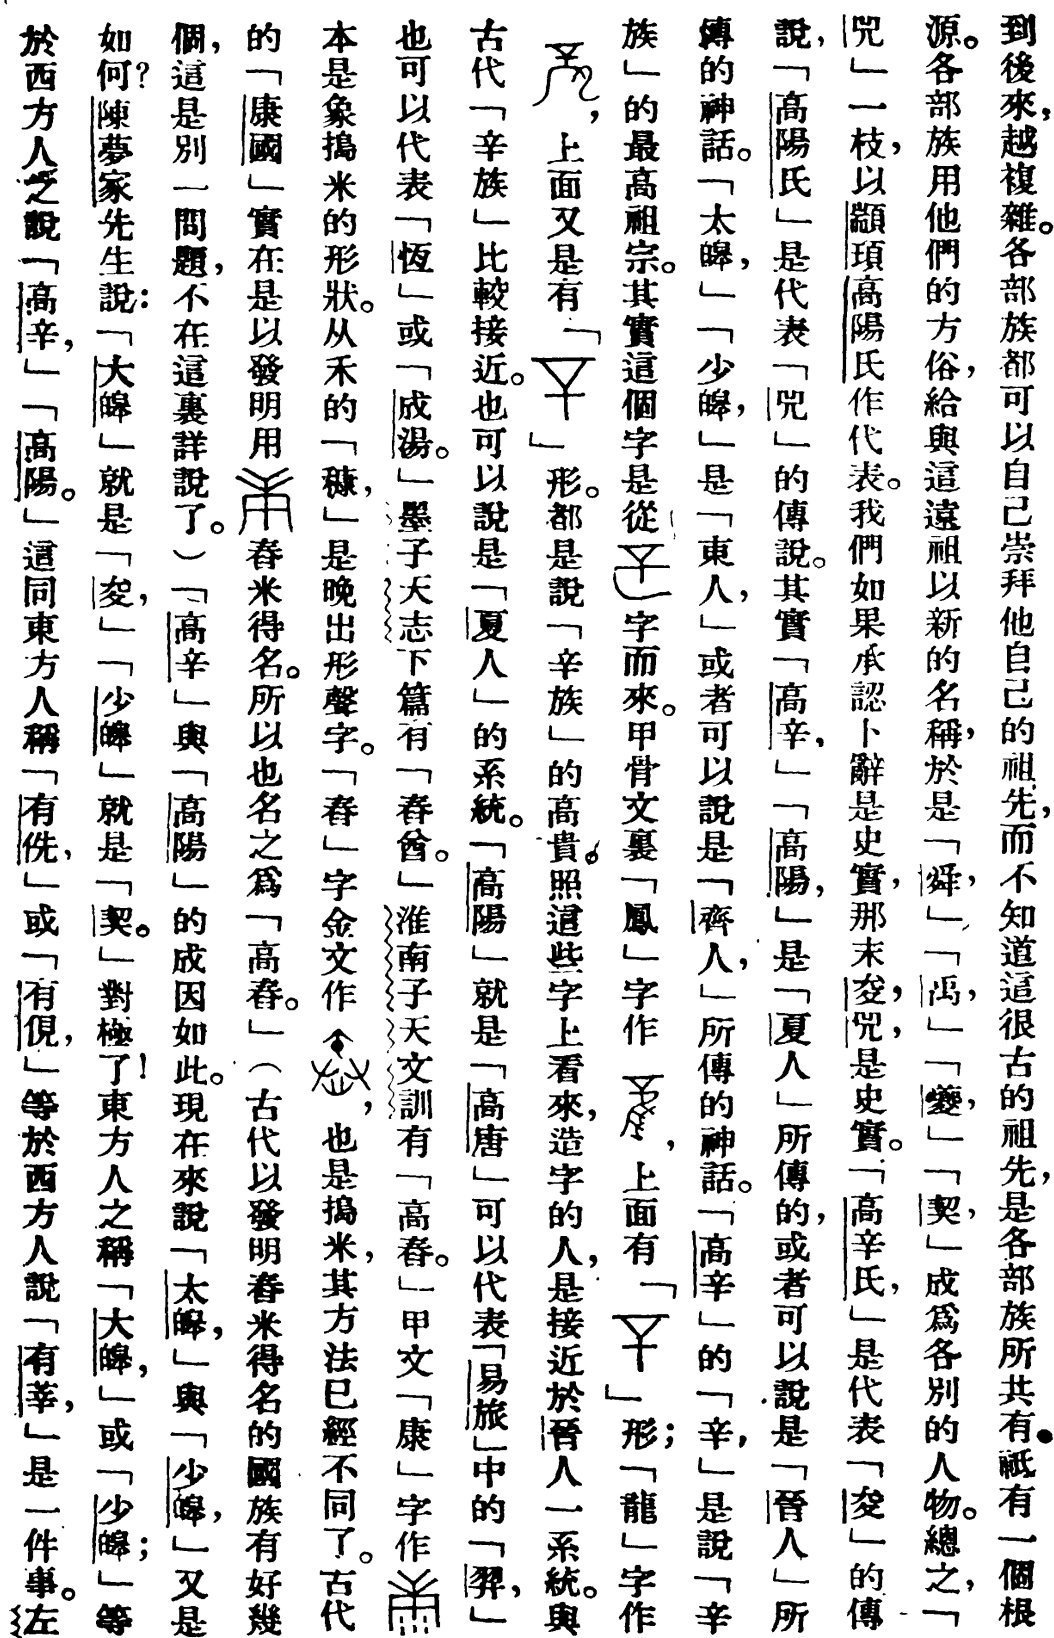 到後來，越複雜。各部族都可以自己崇拜他自己的祖先，而不知道這很古的祖先，是各部族所共有。祇有一個根
源。各部族用他們的方俗，給與這遠祖以新的名稱，於是「舜，」「禹，」「夔，」「契，」成爲各別的人物。總之，「
兕」一枝，以顓頊高陽氏作代表。我們如果承認卜辭是史實，那末夋，兕，是史實。「高辛氏，」是代表「夋」的傳
說，「高陽氏」是代表「兕」的傳說。其實「高辛，」「高陽，」是「夏人」所傳的，或者可以說是「晉人」所
傳的神話。「太皞，」「少皞，」是「東人，」或者可以說是「齊人，」所傳的神話。「高辛」的「辛，」是說「辛
族」的最高祖宗。其實這個字是從字而來。甲骨文裏「鳳」字作，上面有「」形；「龍」字作
，上面又是有「」形。都是說「辛族」的高貴。照這些字上看來，造字的人，是接近於晉人一系統。與
古代「辛族」比較接近。也可以說是「夏人」的系統。「高陽」就是「高唐」可以代表「易旅」中的「羿，」
也可以代表「恆」或「成湯。」墨子天志下篇有「舂酋。」淮南子天文訓有「高舂。」甲文「康」字作
本是象搗米的形狀。从禾的「穅，」是晚出形聲字。「舂」字金文作，也是搗米，其方法已經不同了。古代
的「康國」實在是以發明用舂米得名。所以也名之爲「高舂。」（古代以發明舂米得名的國族有好幾
個，這是別一問題，不在這裏詳說了。）「高辛」與「高陽」的成因如此。現在來說「太皞，」與「少皞，」又是
如何？陳夢家先生說：「大皞」就是「夋，」「少皞」就是「契。」對極了！東方人之稱「大皞，」或「少皞；」等
於西方人之說「高辛，」「高陽。」這同東方人稱「有侁，」或「有侻，」等於西方人說「有莘，」是一件事。左